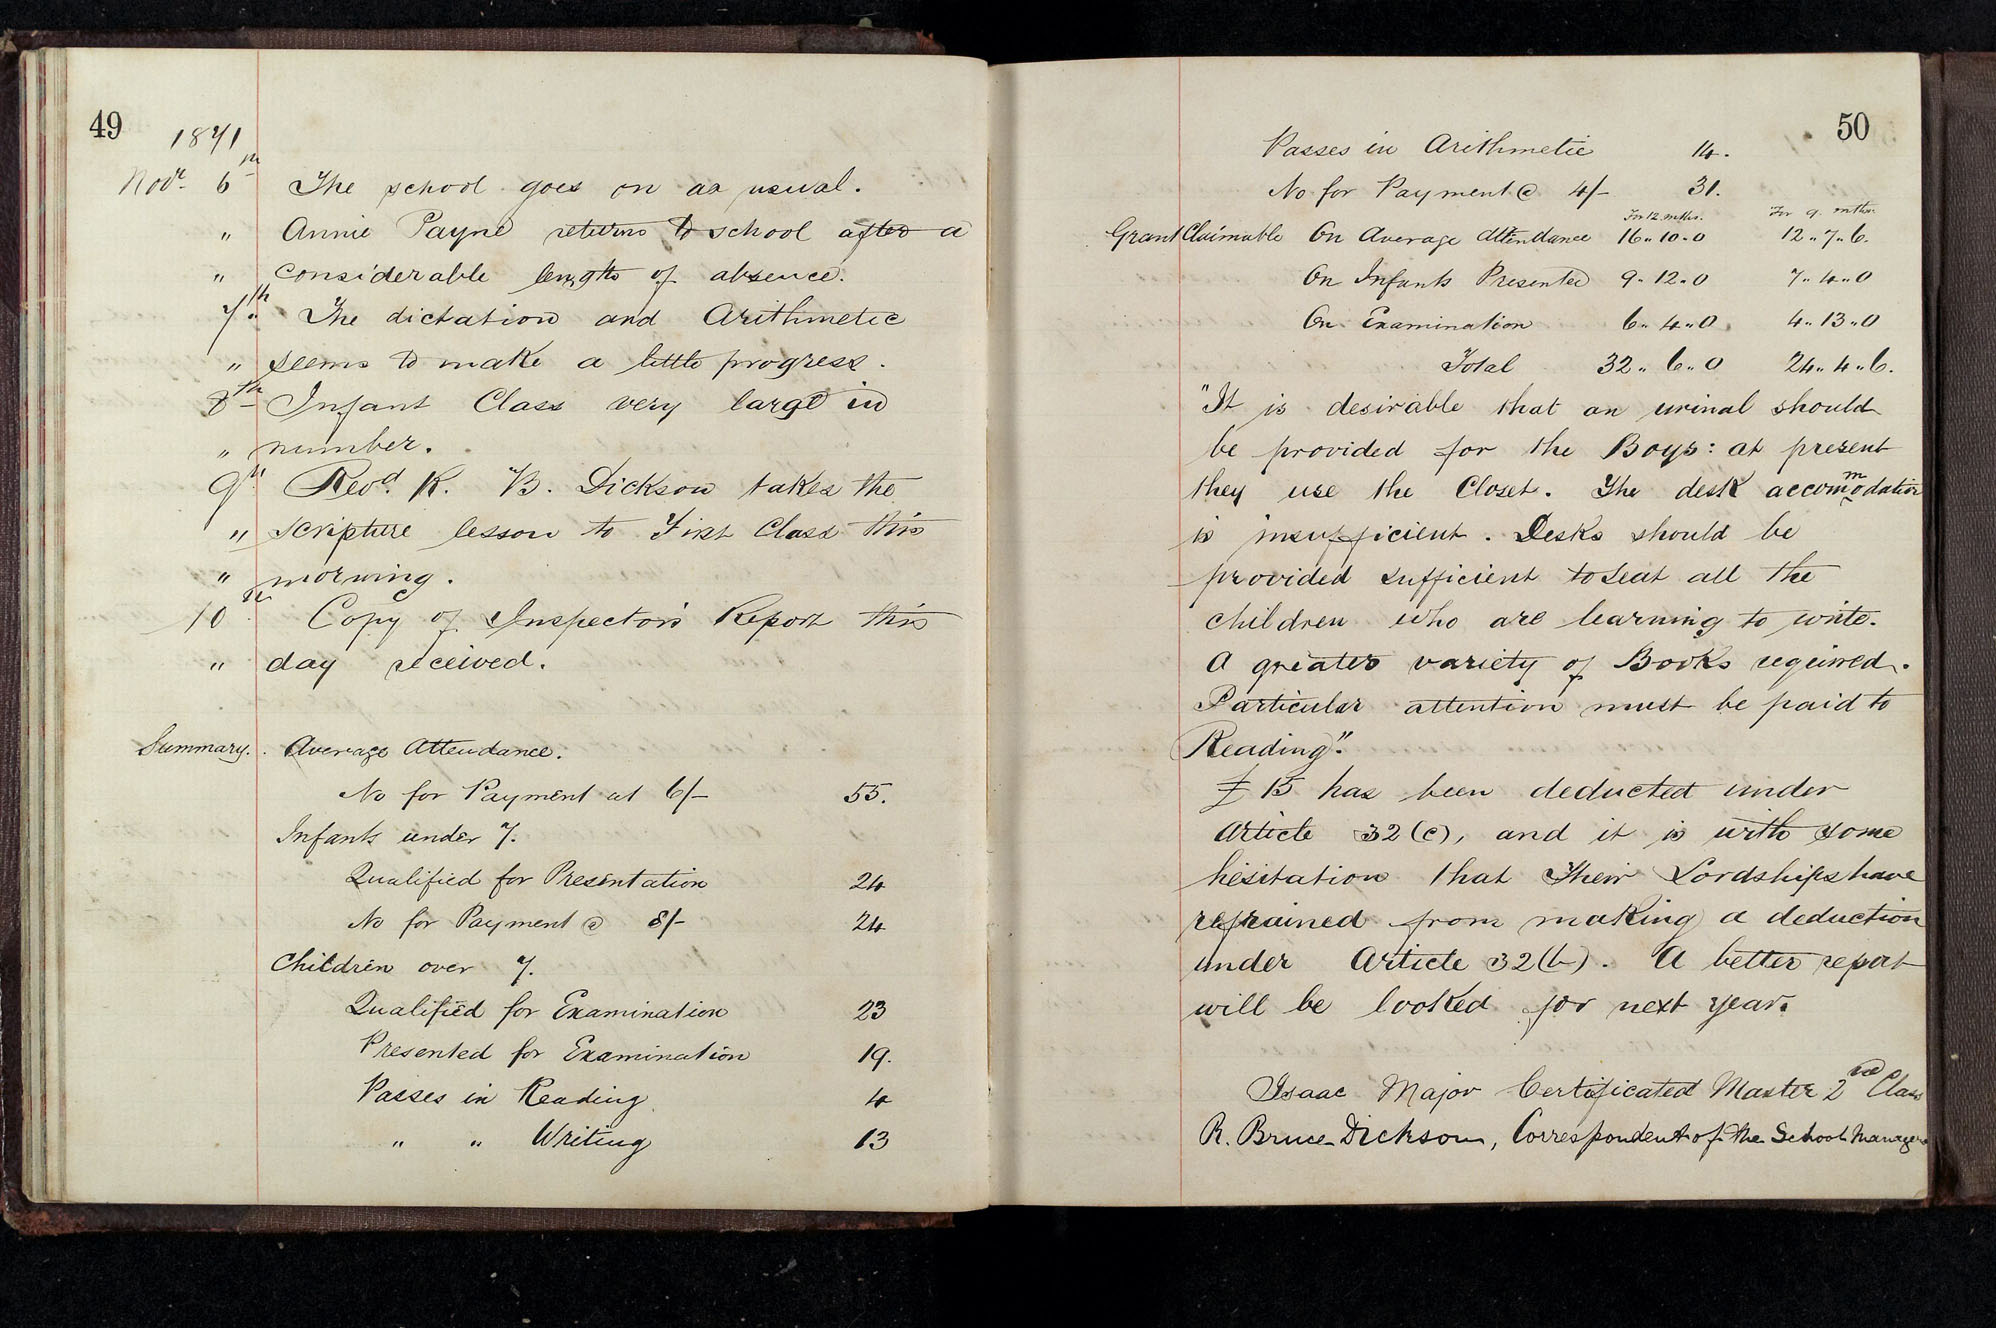 49
1871
Novr. 6th The school goes on as usual.
" Annie Payne returns to school after a
" considerable length of absence.
7th. The dictation and Arithmetic
" seems to make a little progress.
8th Infant Class very large in
" number.
9th Revd. R. B. Dickson takes the
" scripture lesson to First Class this
" morning.
10th Copy of Inspector's Report this
" day received.
Summary. Average Attendance.
No for Payment at 6/- 55.
Infants under 7.
Qualified for Presentation 24
No for Payment @ 8/- 24
Children over 7.
Qualified for Examination 23
Presented for Examination 19.
Passes in Reading 4
" " Writing 13
50
Passes in Arithmetic 14.
No for Payment @ 4/- 31.
For 12 mths. For 9 mths.
Grant Claimable On Average Attendance 16.. 10.. 0 12.. 7.. 6.
On Infants Presented 9.. 12.. 0 7.. 4.. 0
On Examination 6.. 4.. 0. 4.. 13.. 0
Total 32.. 6.. 0 24.. 4.. 6.
"It is desirable that an urinal should
be provided for the Boys: at present
they use the Closet. The desk accommodation
is insufficient. Desks should be
provided sufficient to seat all the
children who are learning to write.
A greater variety of Books required.
Particular attention must be paid to
Reading".
£15 has been deducted under
Article 32(c), and it is with some
hesitation that Their Lordships have
refrained from making a deduction
under Article 32(b). A better report
will be looked for next year.
Isaac Major Certificated Master 2nd Class
R. Bruce Dickson, Correspondent of the School Managers